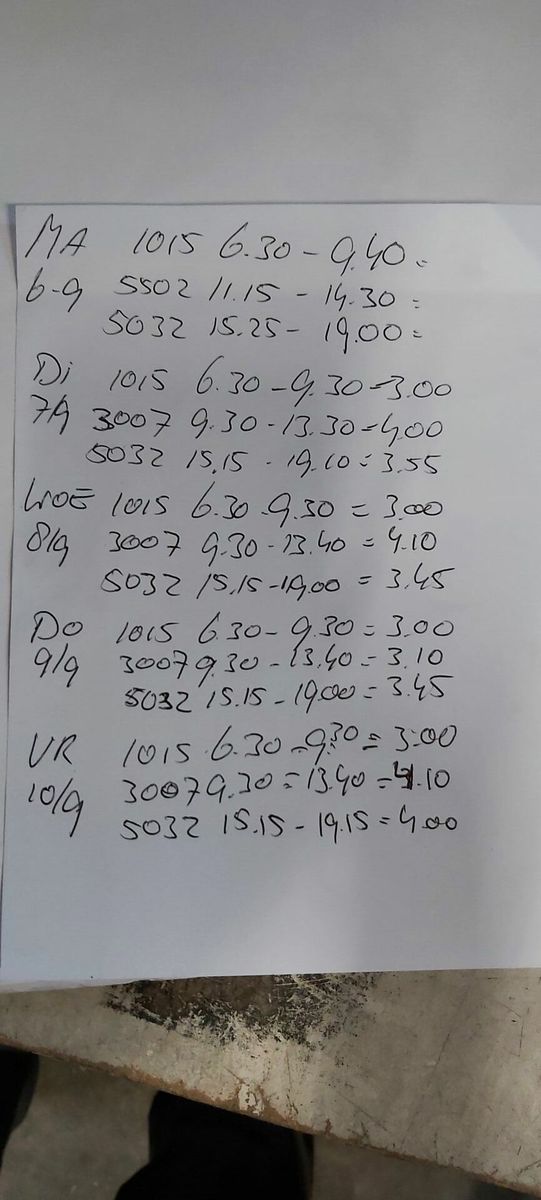 MA 1015 6.30 - 9.40 =
6-9 5502 11.15 - 14.30 =
5032 15.25 - 19.00 =
Di 1015 6.30 - 9.30 = 3.00
7/9 3007 9.30 - 13.30 = 4.00
5032 15.15 - 19.10 = 3.55
WOE 1015 6.30 - 9.30 = 3.00
8/9 3007 9.30 - 13.40 = 4.10
5032 15.15 - 19.00 = 3.45
DO 1015 6.30 - 9.30 = 3.00
9/9 3007 9.30 - 13.40 = 3.10
5032 15.15 - 19.00 = 3.45
VR 1015 6.30 - 9.30 = 3.00
10/9 3007 9.30 = 13.40 = 4.10
5032 15.15 - 19.15 = 4.00